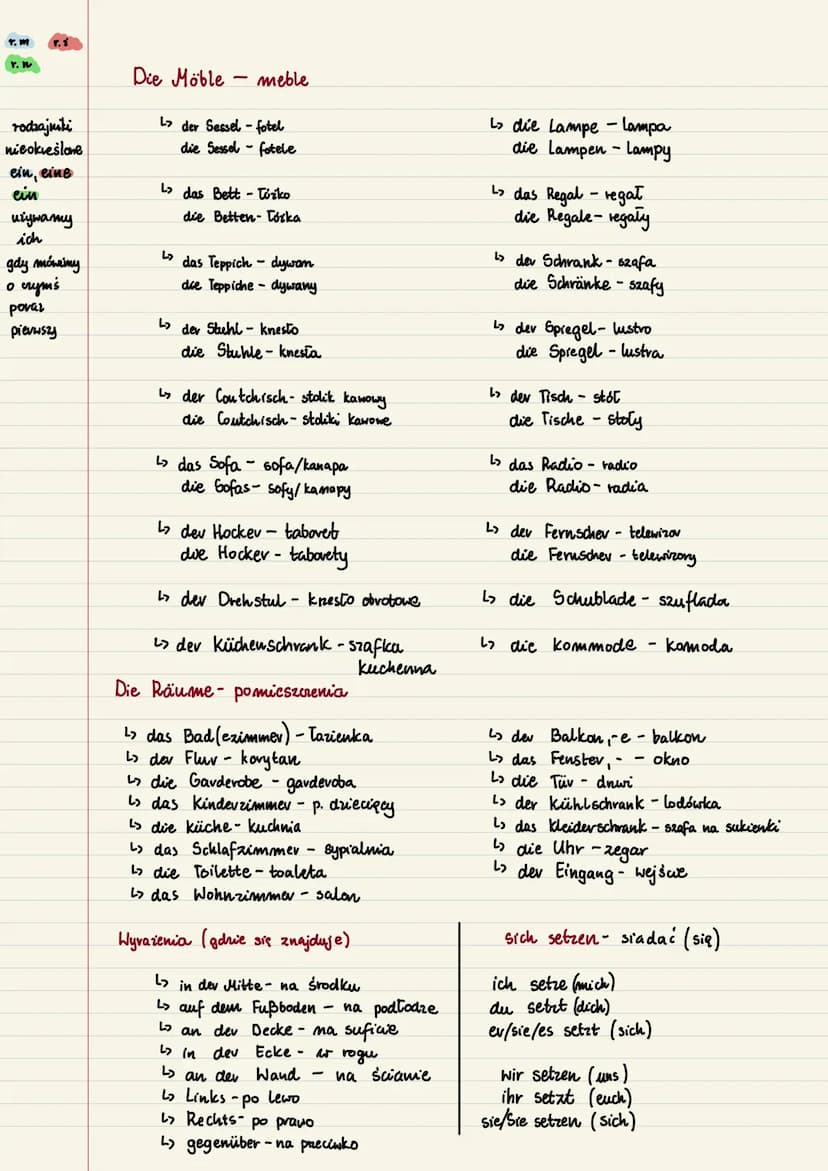 r.m r.ż
r.n
rodzajniki
nieokreślone
ein, eine
ein
używamy
ich
gdy mówimy
o czymś
poraz
pierwszy
Die Möble – meble
↳ der Sessel - fotel
die Sessel - fotele
↳ das Bett - łóżko
die Betten - łóżka
↳ das Teppich - dywan
die Teppiche - dywany
↳ der Stuhl - krzesło
die Stuhle - krzesła
↳ der Coutchisch - stolik kawowy
die Coutchisch - stoliki kawowe
↳ das Sofa - sofa/kanapa
die Sofas - sofy/kanapy
↳ der Hocker - taboret
die Hocker - taborety
↳ der Drehstul - krzesło obrotowe
↳ der Küchenschrank - szafka
kuchenna
↳ die Lampe - lampa
die Lampen - lampy
↳ das Regal - regał
die Regale - regały
↳ der Schrank - szafa
die Schränke - szafy
↳ der Spiegel - lustro
die Spiegel - lustra
↳ der Tisch - stół
die Tische - stoły
↳ das Radio - radio
die Radio - radia
↳ der Fernscher - telewizor
die Fernscher - telewizory
↳ die Schublade - szuflada
↳ die Kommode - komoda
Die Räume - pomieszczenia
↳ das Bad(ezimmer) - łazienka
↳ der Flur - korytarz
↳ die Garderobe - garderoba
↳ das Kinderzimmer - p. dziecięcy
↳ die Küche - kuchnia
↳ das Schlafzimmer - sypialnia
↳ die Toilette - toaleta
↳ das Wohnzimmer - salon
↳ der Balkon, -e - balkon
↳ das Fenster, - - okno
↳ die Tür - drzwi
↳ der Kühlschrank - lodówka
↳ das Kleiderschrank - szafa na sukienki
↳ die Uhr - zegar
↳ der Eingang - wejście
Wyrażenia (gdzie się znajduje)
↳ in der Mitte - na środku
↳ auf dem Fußboden - na podłodze
↳ an der Decke - na suficie
↳ in der Ecke - w rogu
↳ an der Wand - na ścianie
↳ Links - po lewo
↳ Rechts - po prawo
↳ gegenüber - na przeciwko
sich setzen - siadać (się)
ich setze (mich)
du setzt (dich)
er/sie/es setzt (sich)
wir setzen (uns)
ihr setzt (euch)
sie/Sie setzen (sich)